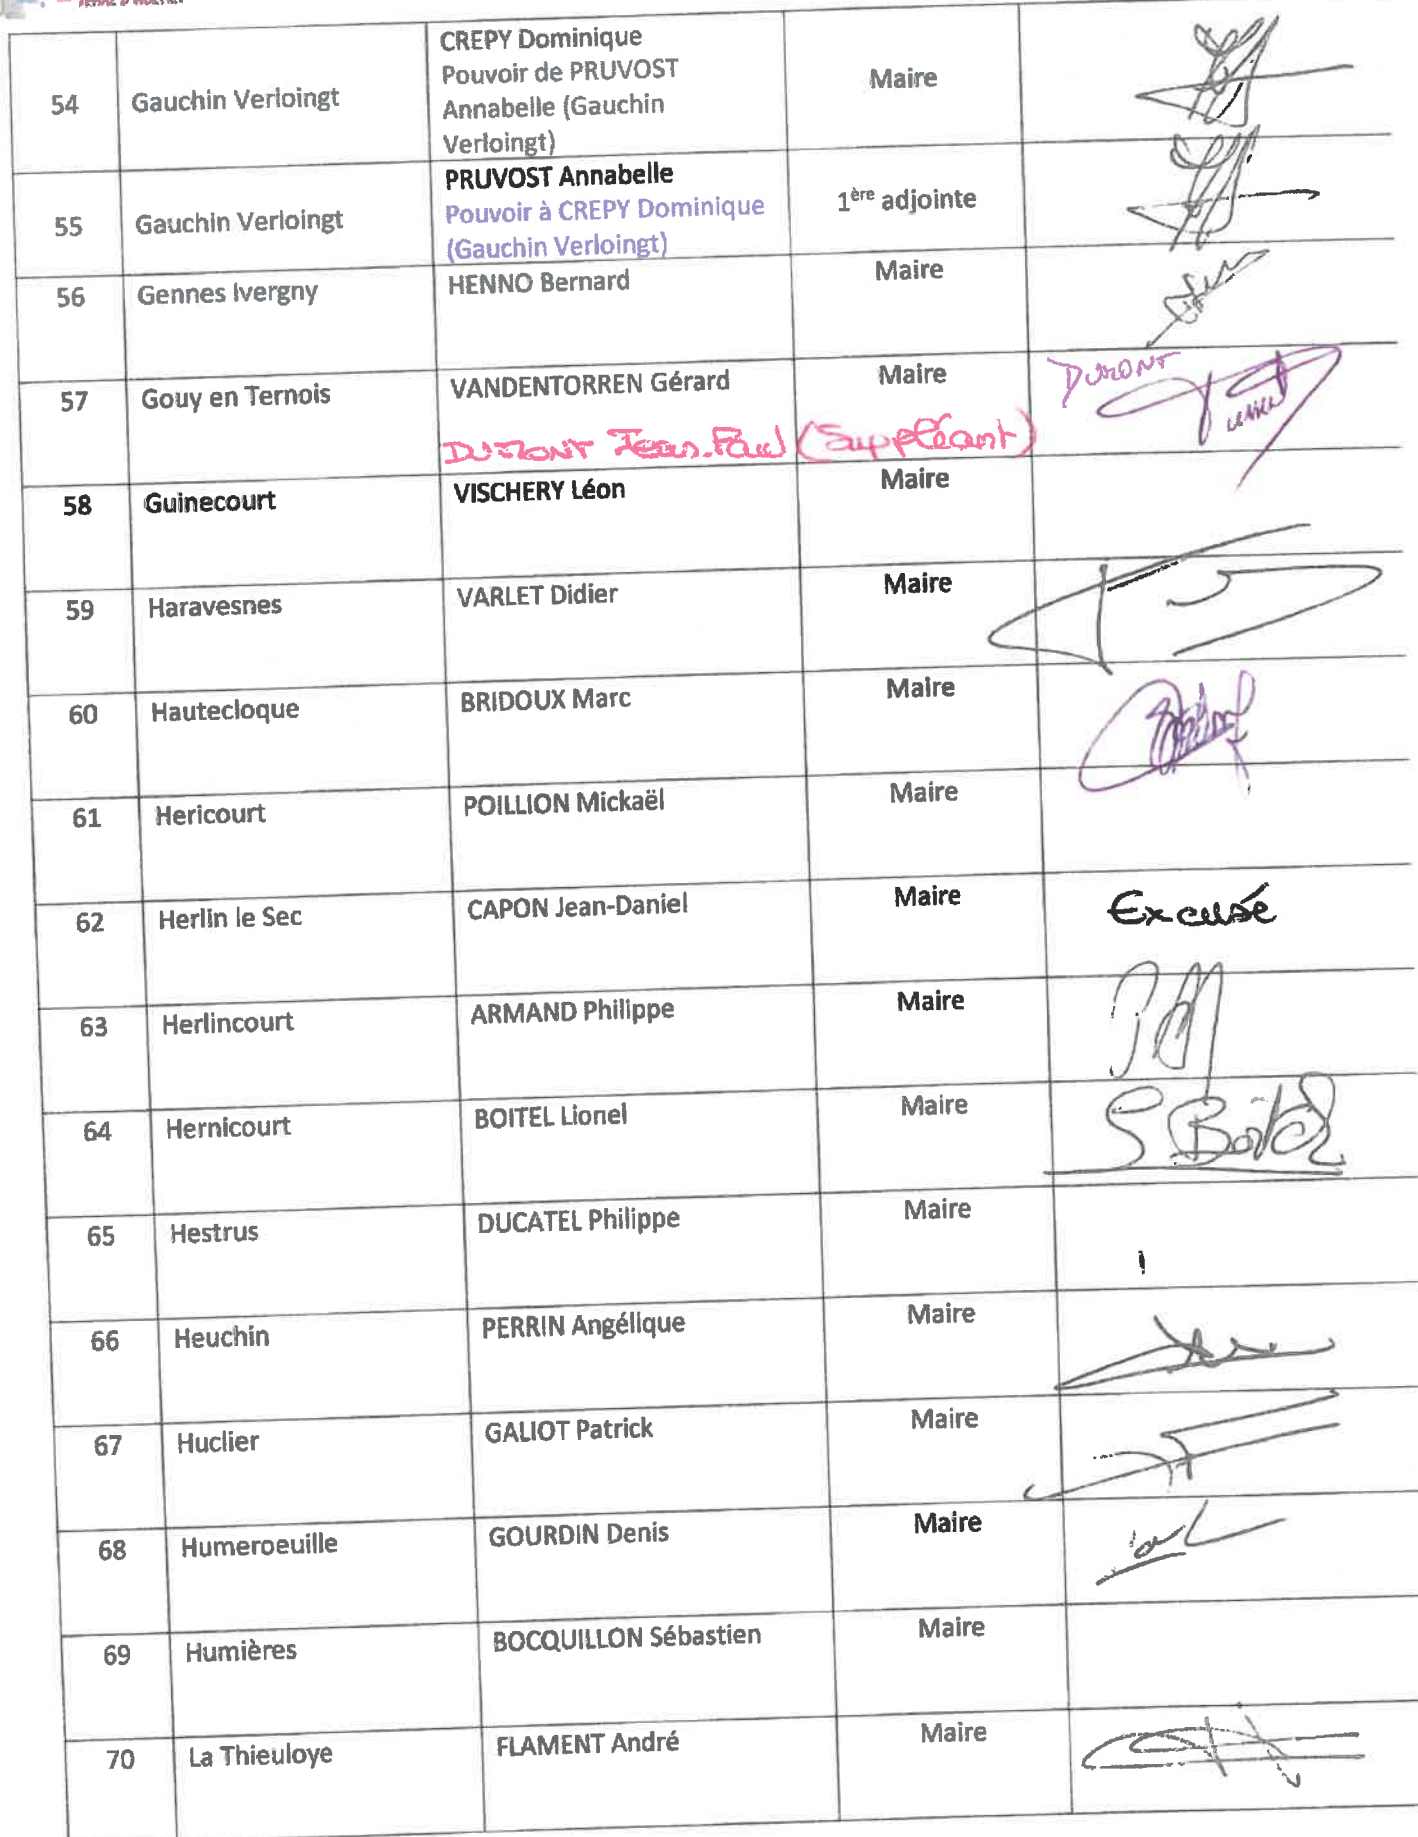 CREPY Dominique
Pouvoir de PRUVOST
Annabelle (Gauchin
Verloingt)
54 Gauchin Verloingt Maire
PRUVOST Annabelle
Pouvoir à CREPY Dominique
(Gauchin Verloingt)
55 Gauchin Verloingt 1ère adjointe
56 Gennes Ivergny HENNO Bernard Maire
57 Gouy en Ternois VANDENTORREN Gérard Maire DUMONT
DUMONT Jean-Paul (Suppléant)
58 Guinecourt VISCHERY Léon Maire
59 Haravesnes VARLET Didier Maire
60 Hautecloque BRIDOUX Marc Maire
61 Hericourt POILLION Mickaël Maire
62 Herlin le Sec CAPON Jean-Daniel Maire Excusé
63 Herlincourt ARMAND Philippe Maire
64 Hernicourt BOITEL Lionel Maire
65 Hestrus DUCATEL Philippe Maire
66 Heuchin PERRIN Angélique Maire
67 Huclier GALIOT Patrick Maire
68 Humeroeuille GOURDIN Denis Maire
69 Humières BOCQUILLON Sébastien Maire
70 La Thieuloye FLAMENT André Maire